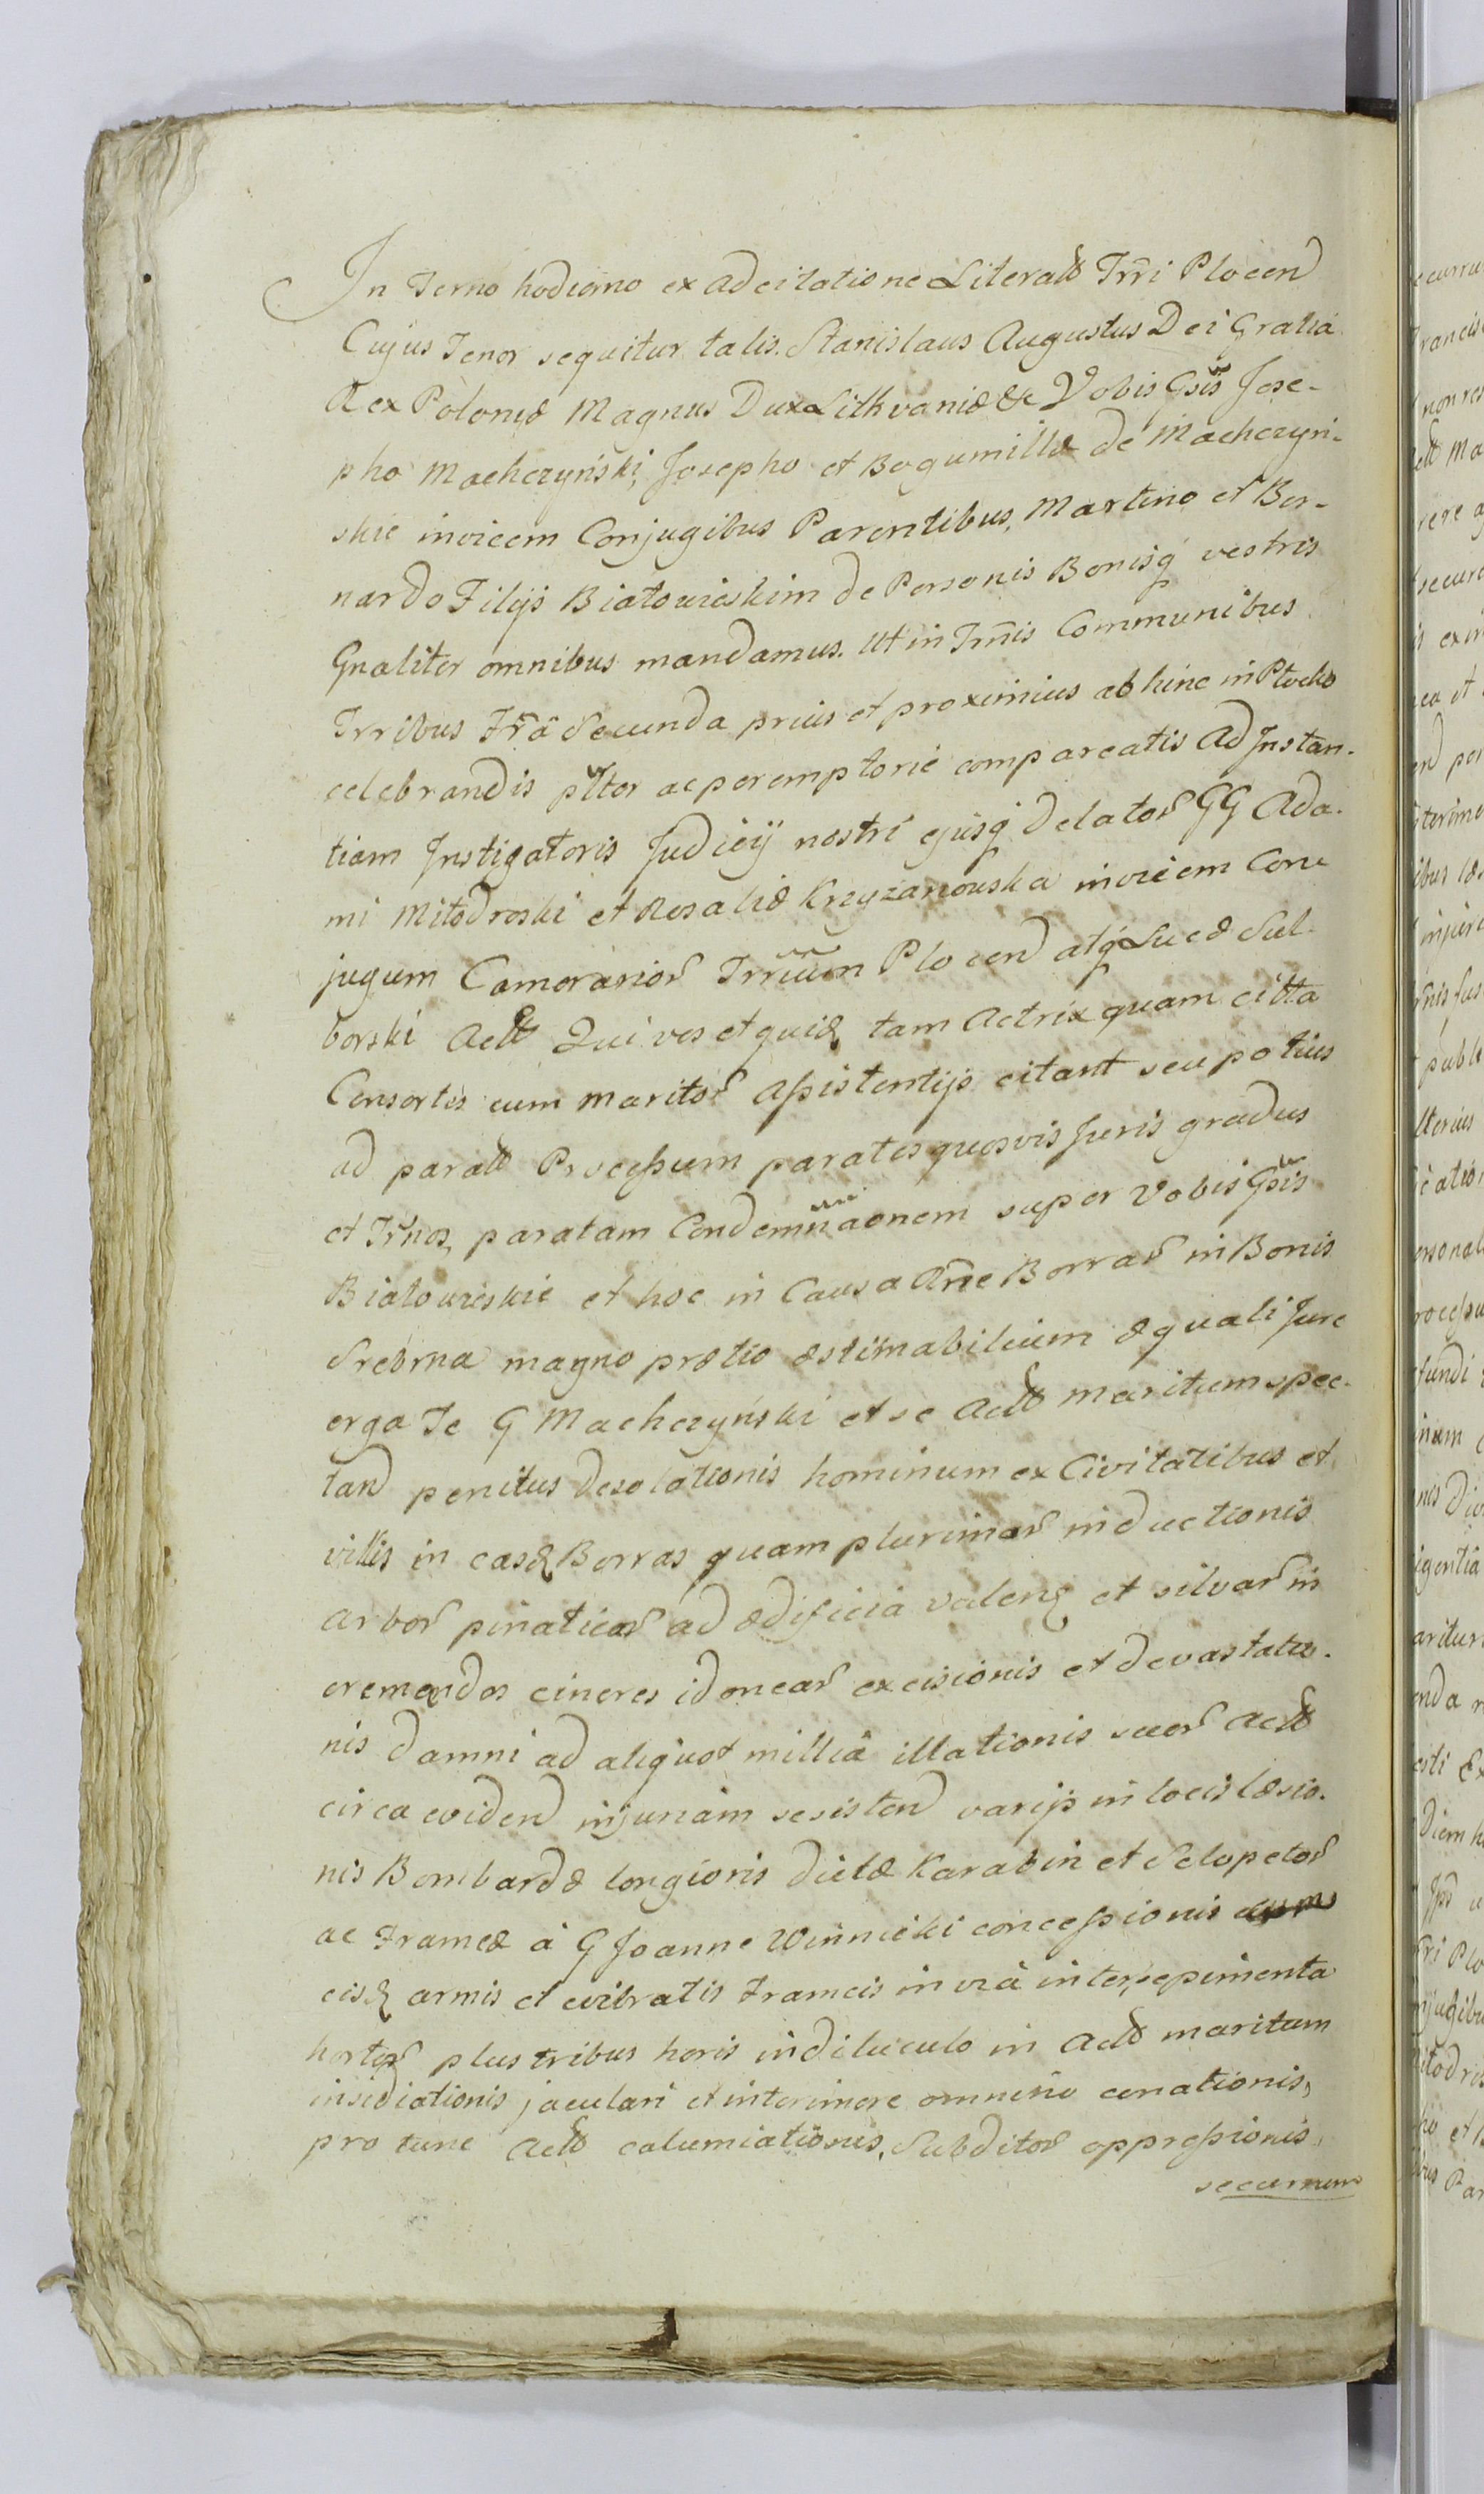 In Terno hodierno ex adcitatione Literali Trri Plocen
Cujus Tenor sequitur talis. Stanislaus Augustus Dei Gratiâ
Rex Poloniæ Magnus Dux Lithvaniæ &c Vobis Gsis Jose-
pho Machczyński, Josepho et Bogumillæ de Machczyń-
skie invicem Conjugibus Parentibus, Martino et Ber-
nardo Filijs Białowieskim de Personis Bonisq vestris
Gnaliter omnibus mandamus. Ut in Trmis Communibus
Trribus Fr̃a Secunda prius et proximius ab hinc in Płocko
celebrandis pltor ac peremptorie compareatis Ad Instan-
tiam Instigatoris Judicÿ nostri ejusq delator GG Ada-
mi Miłodroski et Rosaliæ Krzyzanowska invicem Con-
jugum Camerarior Trrium Plocen atq Lucæ Sul-
borski Act Qui vos et quidę tam Actrix quam citta
Consortes cum maritor assistentijs citant seu potius
ad parat Processum parates quosvis Juris gradus
et Trnos, paratam Condemnaonem super Vobis Gsis
Białowieskie et hoc in Causa Ane Borrar in Bonis
Srebrna magno prætio æstimabilium æquali Jure
erga Te G Machczyński et se Act maritum spec-
tan penitus desolationis hominum ex Civitatibus et
villis in easd Borras quam plurimar inductionis
arbor pinaticar ad ædificia valen et silvar in
cremandos cineres idonear excisionis et devastatio-
nis damni ad aliquot millia illationis suor Act
circa eviden injuriam se sisten varijs in locis læsio-
nis Bombardæ longioris dictæ Karabin et Sclopetor
ac Frameæ à G Joanne Winnicki concessionis
eisd armis et evibratis Frameis in viâ inter sepimenta
hortor plus tribus horis in diluculo in Act maritum
insidiationis jaculari et interimere omnino conationis,
pro tunc Act calumiationis, Subditor oppressionis,
securum